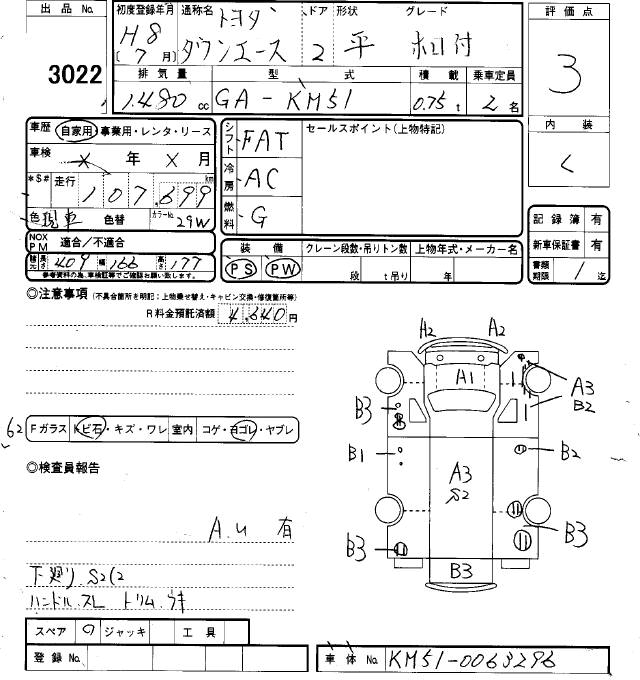 出品 No.
3022
初度登録年月 通称名 ドア 形状 グレード
H8 (7月) トヨタ タウンエース 2 平 木口付
排気量 型式 積載 乗車定員
1.480 cc GA-KM51 0.75 t 2 名
評価点
3
内装
C
車歴 自家用・事業用・レンタ・リース
車検 X 年 X 月
*$# 走行 107,699 km
色 現車 色替 カラーNo. 29W
NOX PM 適合/不適合
諸元 長さ 409 幅 166 高さ 177
参考資料の為、車検証等でご確認お願い致します。
シフト FAT
冷房 AC
燃料 G
セールスポイント(上物特記)
装備 クレーン段数・吊りトン数 上物年式・メーカー名
PS PW 段 t吊り 年
記録簿 有
新車保証書 有
書類期限 / 迄
◎注意事項 (不具合箇所を明記:上物乗せ替え・キャビン交換・修復箇所等)
R料金預託済額 4,640 円
62 Fガラス トビ石・キズ・ワレ 室内 コゲ・ヨゴレ・ヤブレ
◎検査員報告
A.W 有
下廻り S2C2
ハンドル スレ トリム ウキ
スペア ジャッキ 工具
登録 No.
車体 No. KM51-0063296
A2 A2
A1
A3
B2
B3
B1
A3
S2
B2
B3
B3
B3